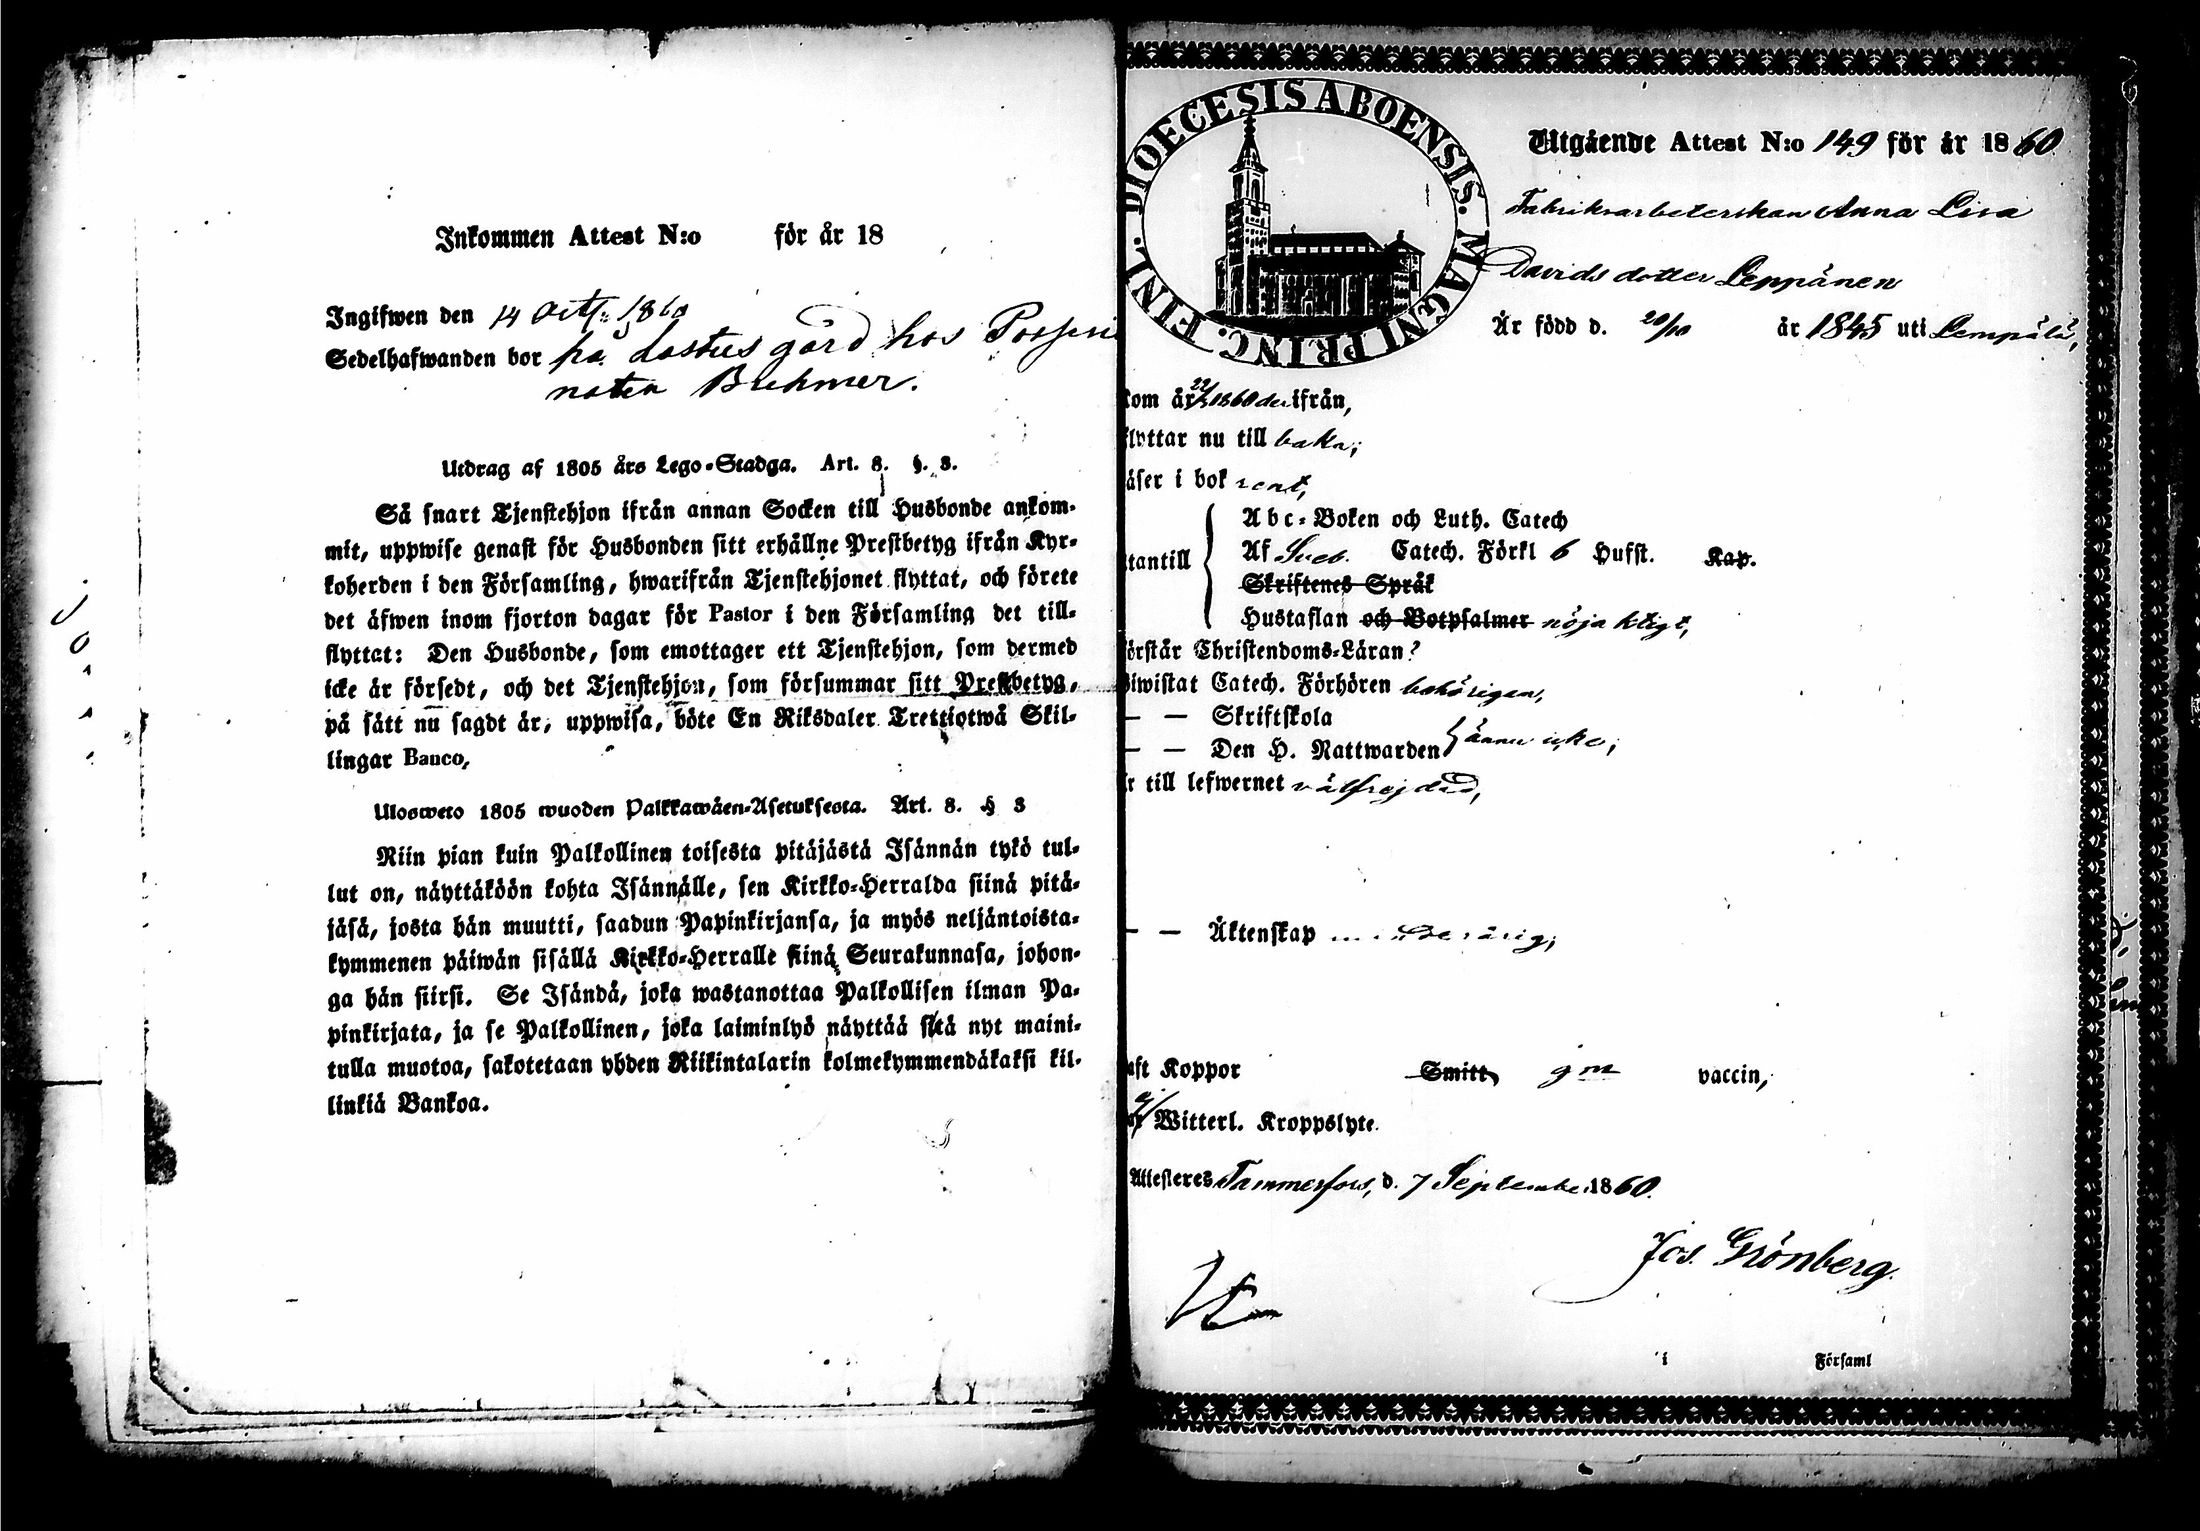 Inkommen Attest N:o för år 18
Ingifwen den 14 1860
Sedelhafwanden bor på gård hos
Utdrag af 1805 års Lego-Stadga. Art. 8. §. 3.
Så snart Tjenstehjon ifrån annan Socken till Husbonde ankom-
mit, uppwise genast för Husbonden sitt erhållne Prestbetyg ifrån Kyr-
koherden i den Församling, hwarifrån Tjenstehjonet flyttat, och förete
det äfwen inom fjorton dagar för Pastor i den Församling det till-
flyttat: Den Husbonde, som emottager ett Tjenstehjon, som dermed
icke är försedt, och det Tjenstehjon, som försummar sitt Prestbetyg,
på sätt nu sagdt är, uppwisa, böte En Riksdaler Trettiotwå Skil-
lingar Banco,
Uloswetо 1805 wuoden Palkkawäen-Asetuksesta. Art. 8. § 3
Niin pian kuin Palkollinen toisesta pitäjästä Isännän tykö tul-
lut on, näyttäköön kohta Isännälle, sen Kirkko-Herralda siinä pitä-
jäsä, josta hän muutti, saadun Papinkirjansa, ja myös neljäntoista-
kymmenen päiwän sisällä Kirkko-Herralle siinä Seurakunnasa, johon-
ga hän siirsi. Se Isändä, joka wastanottaa Palkollisen ilman Pa-
pinkirjata, ja se Palkollinen, joka laiminlyö näyttää sitä nyt maini-
tulla muotoa, sakotetaan yhden Riikintalarin kolmekymmendäkaksi kil-
linkiä Bankoa.
DIOECESIS ABOENSIS. MAGNI PRINC. FINL.
Utgående Attest N:o 149 för år 1860
Fabriksarbeterskan Anna Lisa
Davids dotter Leppänen
Är född d. 20/10 år 1845 uti Lempälä,
kom år 1860 der ifrån,
flyttar nu till baka;
läser i bok rent,
utantill
Abc-Boken och Luth. Catech
Af Sveb. Catech. Förkl 6 Hufst. Kap.
Skriftenes Språk
Hustaflan och Botpsalmer nöjaktigt,
Förstår Christendoms-Läran?
Biwistat Catech. Förhören behörigen,
— — Skriftskola
— — Den H. Nattwarden ännu icke;
Är till lefwernet välfrejdad,
— — Äktenskap minderårig;
haft Koppor Smitt, gm vaccin,
Witterl. Kroppslyte.
Attesteres Tammerfors, d. 7 September 1860.
Jos. Grönberg.
i Församl